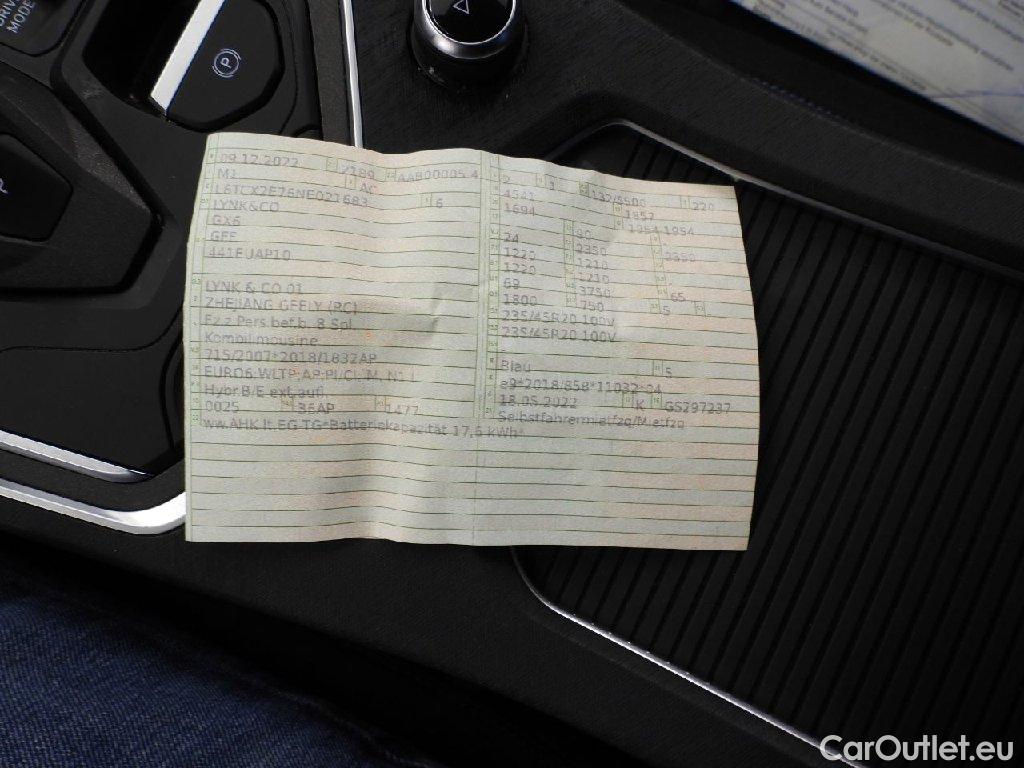 DRIVE
MODE
P
09.12.2022 2189 AAB00005 4
M1 AC
L6TCX2E76NE021683 6
LYNK&CO
GX6
GFF
441EUAP10
LYNK & CO 01
ZHEJIANG GEELY (RC)
Fz.z.Pers.bef.b. 8 Spl.
Kombilimousine
715/2007*2018/1832AP
EURO6;WLTP;AP;PI/CI; M, N1 I
Hybr.B/E ext.aufl
0025 36AP 1477
ww.AHK lt.EG-TG*Batteriekapazität 17,6 kWh*
2 1 132/5500 220
4541 1857
1694 1954 1954
90
24 2350 2350
1220 1210
1220 1210
69 3750 65
1800 750 5
235/45R20 100V
235/45R20 100V
Blau 5
e9*2018/858*11032*04
18.05.2022 K GS297237
Selbstfahrermietfzg/Mietfzg
CarOutlet.eu